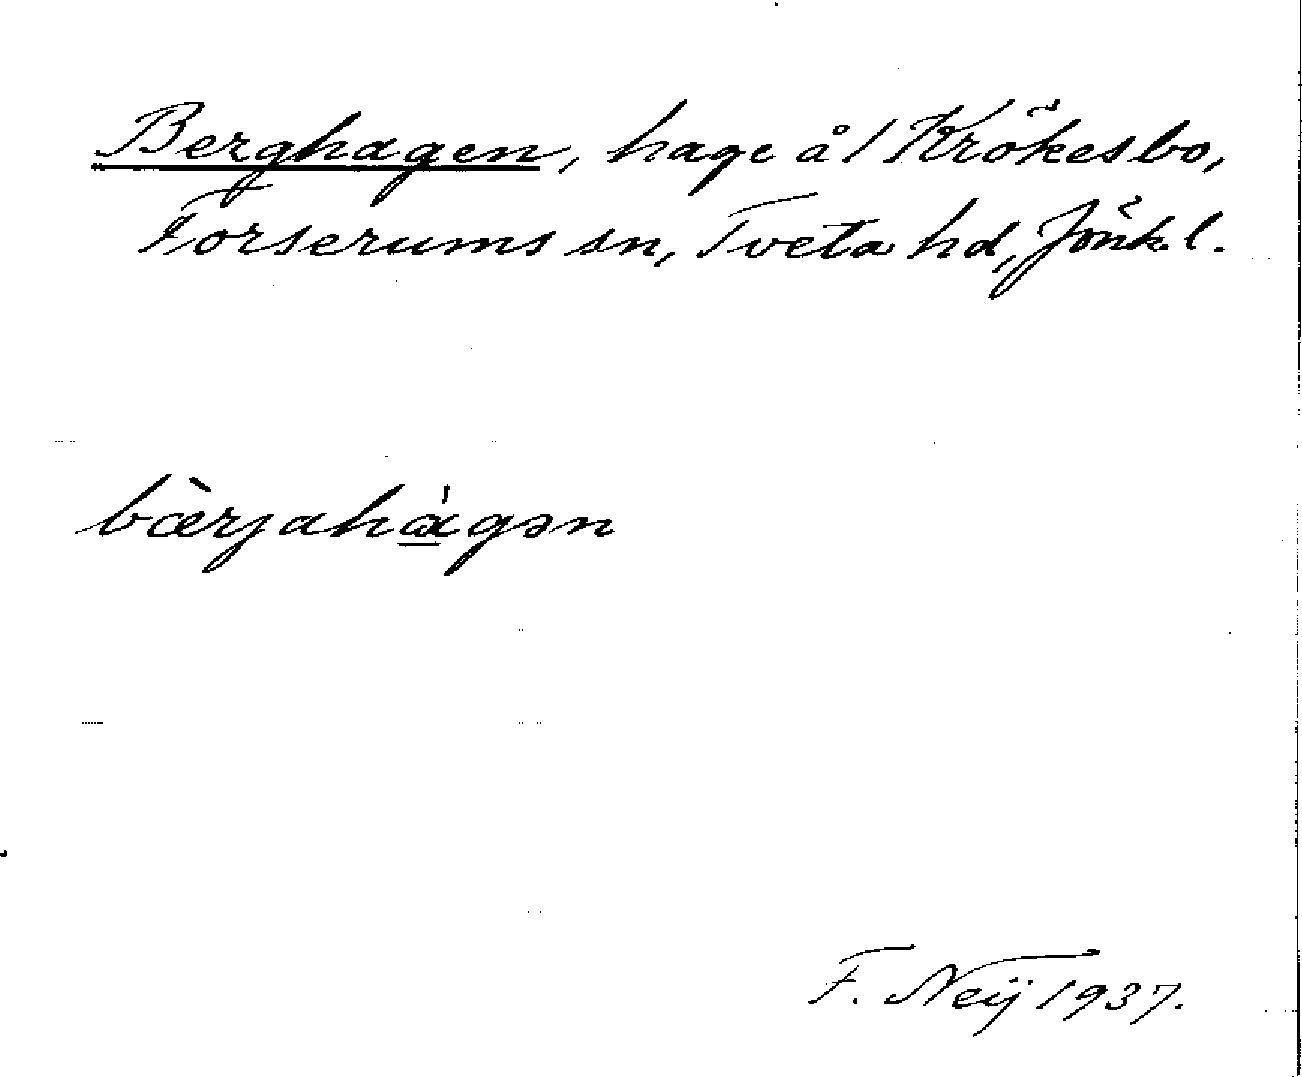 Berghagen, hage å 1 Krökesbo,
Forserums sn, Tveta hd, Jönk. l.
bæ̀rjahágən
F. Neij 1937.